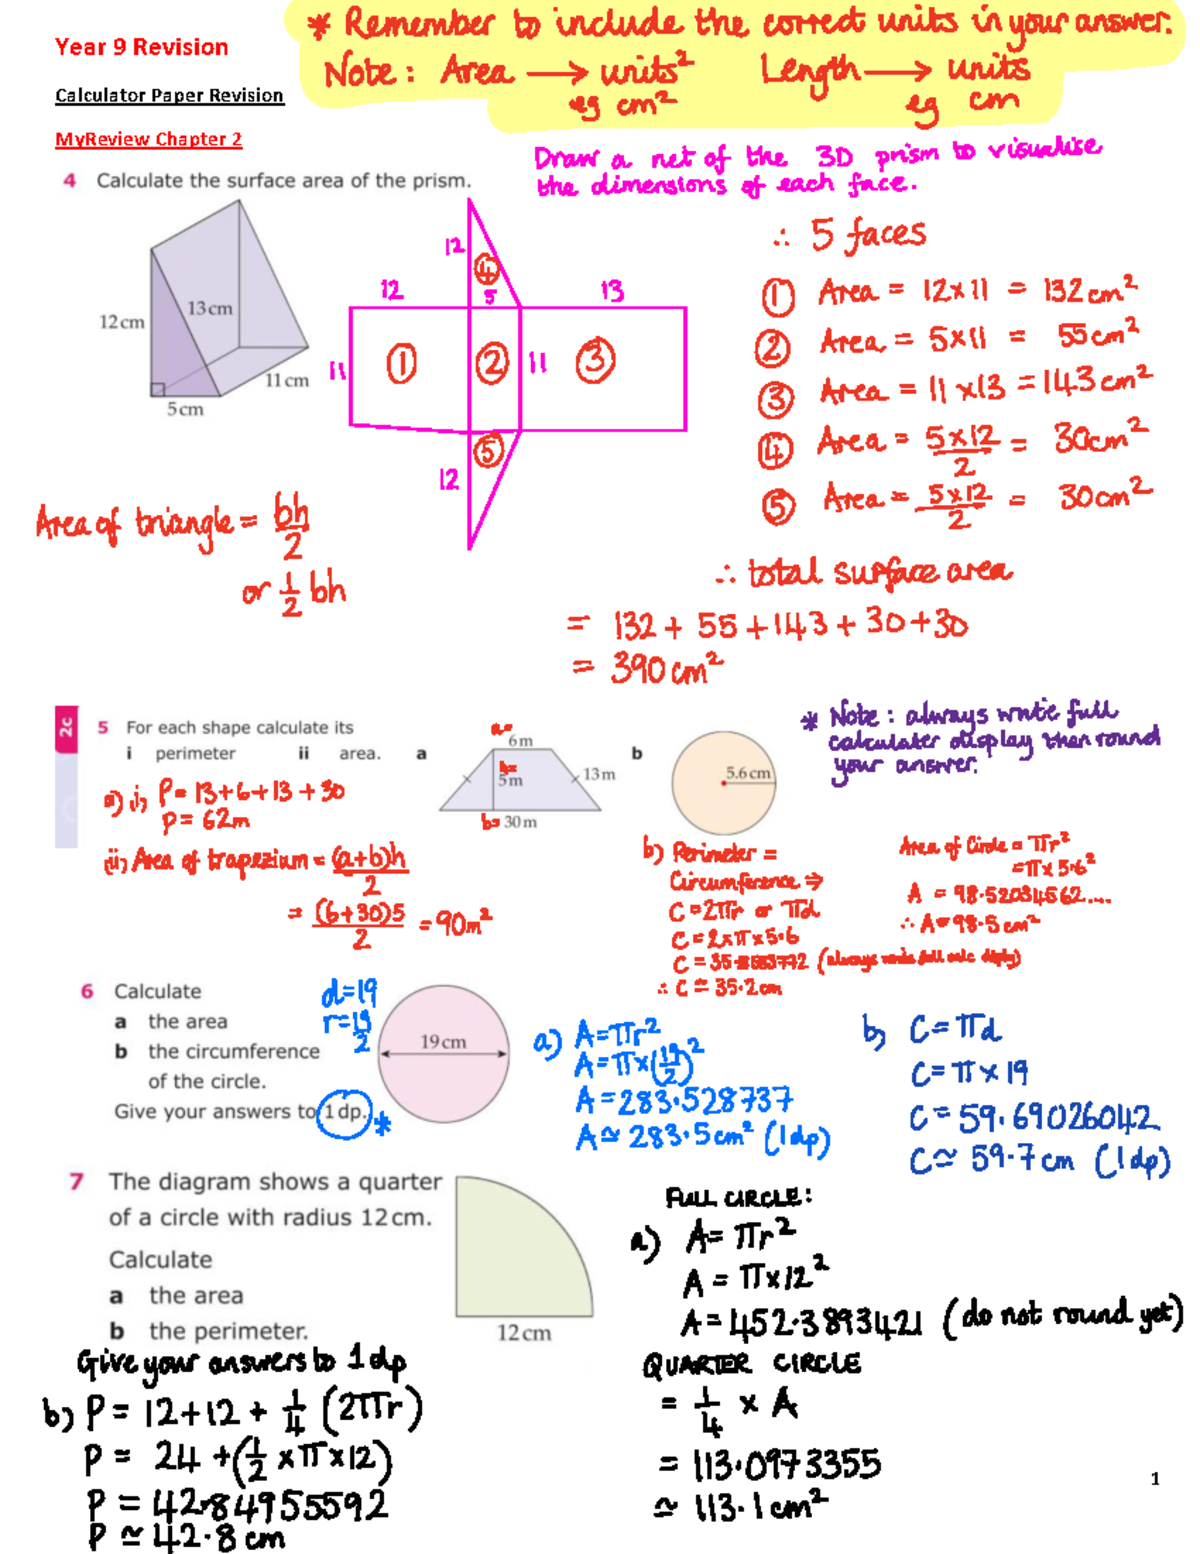 * Remember to include the correct units in your answer.
Note: Area → units²   Length → units
eg cm²   eg cm
Year 9 Revision
Calculator Paper Revision
MyReview Chapter 2
Draw a net of the 3D prism to visualise
the dimensions of each face.
4 Calculate the surface area of the prism.
12cm
13cm
11cm
5cm
12
④
12
5
13
11
①
②
11
③
⑤
12
∴ 5 faces
① Area = 12×11 = 132cm²
② Area = 5×11 = 55cm²
③ Area = 11×13 = 143cm²
④ Area = 5×12/2 = 30cm²
⑤ Area = 5×12/2 = 30cm²
Area of triangle = bh/2
or 1/2 bh
∴ total surface area
= 132 + 55 + 143 + 30 + 30
= 390cm²
2c
5 For each shape calculate its
i perimeter   ii area.
a
a=
6m
h=
5m
13m
b= 30m
b
5.6cm
* Note: always write full
calculater display then round
your answer.
a) i) P= 13+6+13+30
P= 62m
(ii) Area of trapezium = (a+b)h/2
= (6+30)5/2 = 90m²
b) Perimeter =
Circumference ⇒
C=2πr or πd
C=2×π×5.6
(always write full calc display)
∴ C ≃ 35.2cm
Area of Circle = πr²
=π×5.6²
A = 98.52034562....
∴ A=98.5cm²
6 Calculate
a the area
b the circumference
of the circle.
Give your answers to 1dp. *
d=19
r=19/2
19cm
a) A=πr²
A=π×(19/2)²
A=283.528737
A≃ 283.5cm² (1dp)
b) C=πd
C=π×19
C=59.69026042
C≃ 59.7cm (1dp)
7 The diagram shows a quarter
of a circle with radius 12cm.
Calculate
a the area
b the perimeter.
12cm
Give your answers to 1dp
b) P= 12+12 + 1/4 (2πr)
P= 24 +(1/2 ×π×12)
P=42.84955592
P≃42.8cm
FULL CIRCLE:
a) A= πr²
A=π×12²
A=452.3893421 (do not round yet)
QUARTER CIRCLE
= 1/4 × A
= 113.0973355
≃ 113.1cm²
1